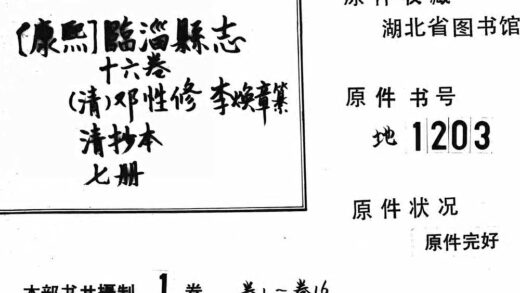 [康熙]臨淄縣志
十六卷
(清)邓性修 李焕章纂
清抄本
七册
原件收藏
湖北省图书馆
原件书号
地 1203
原件状况
原件完好
本部书共摄制 1 卷 卷1～卷16